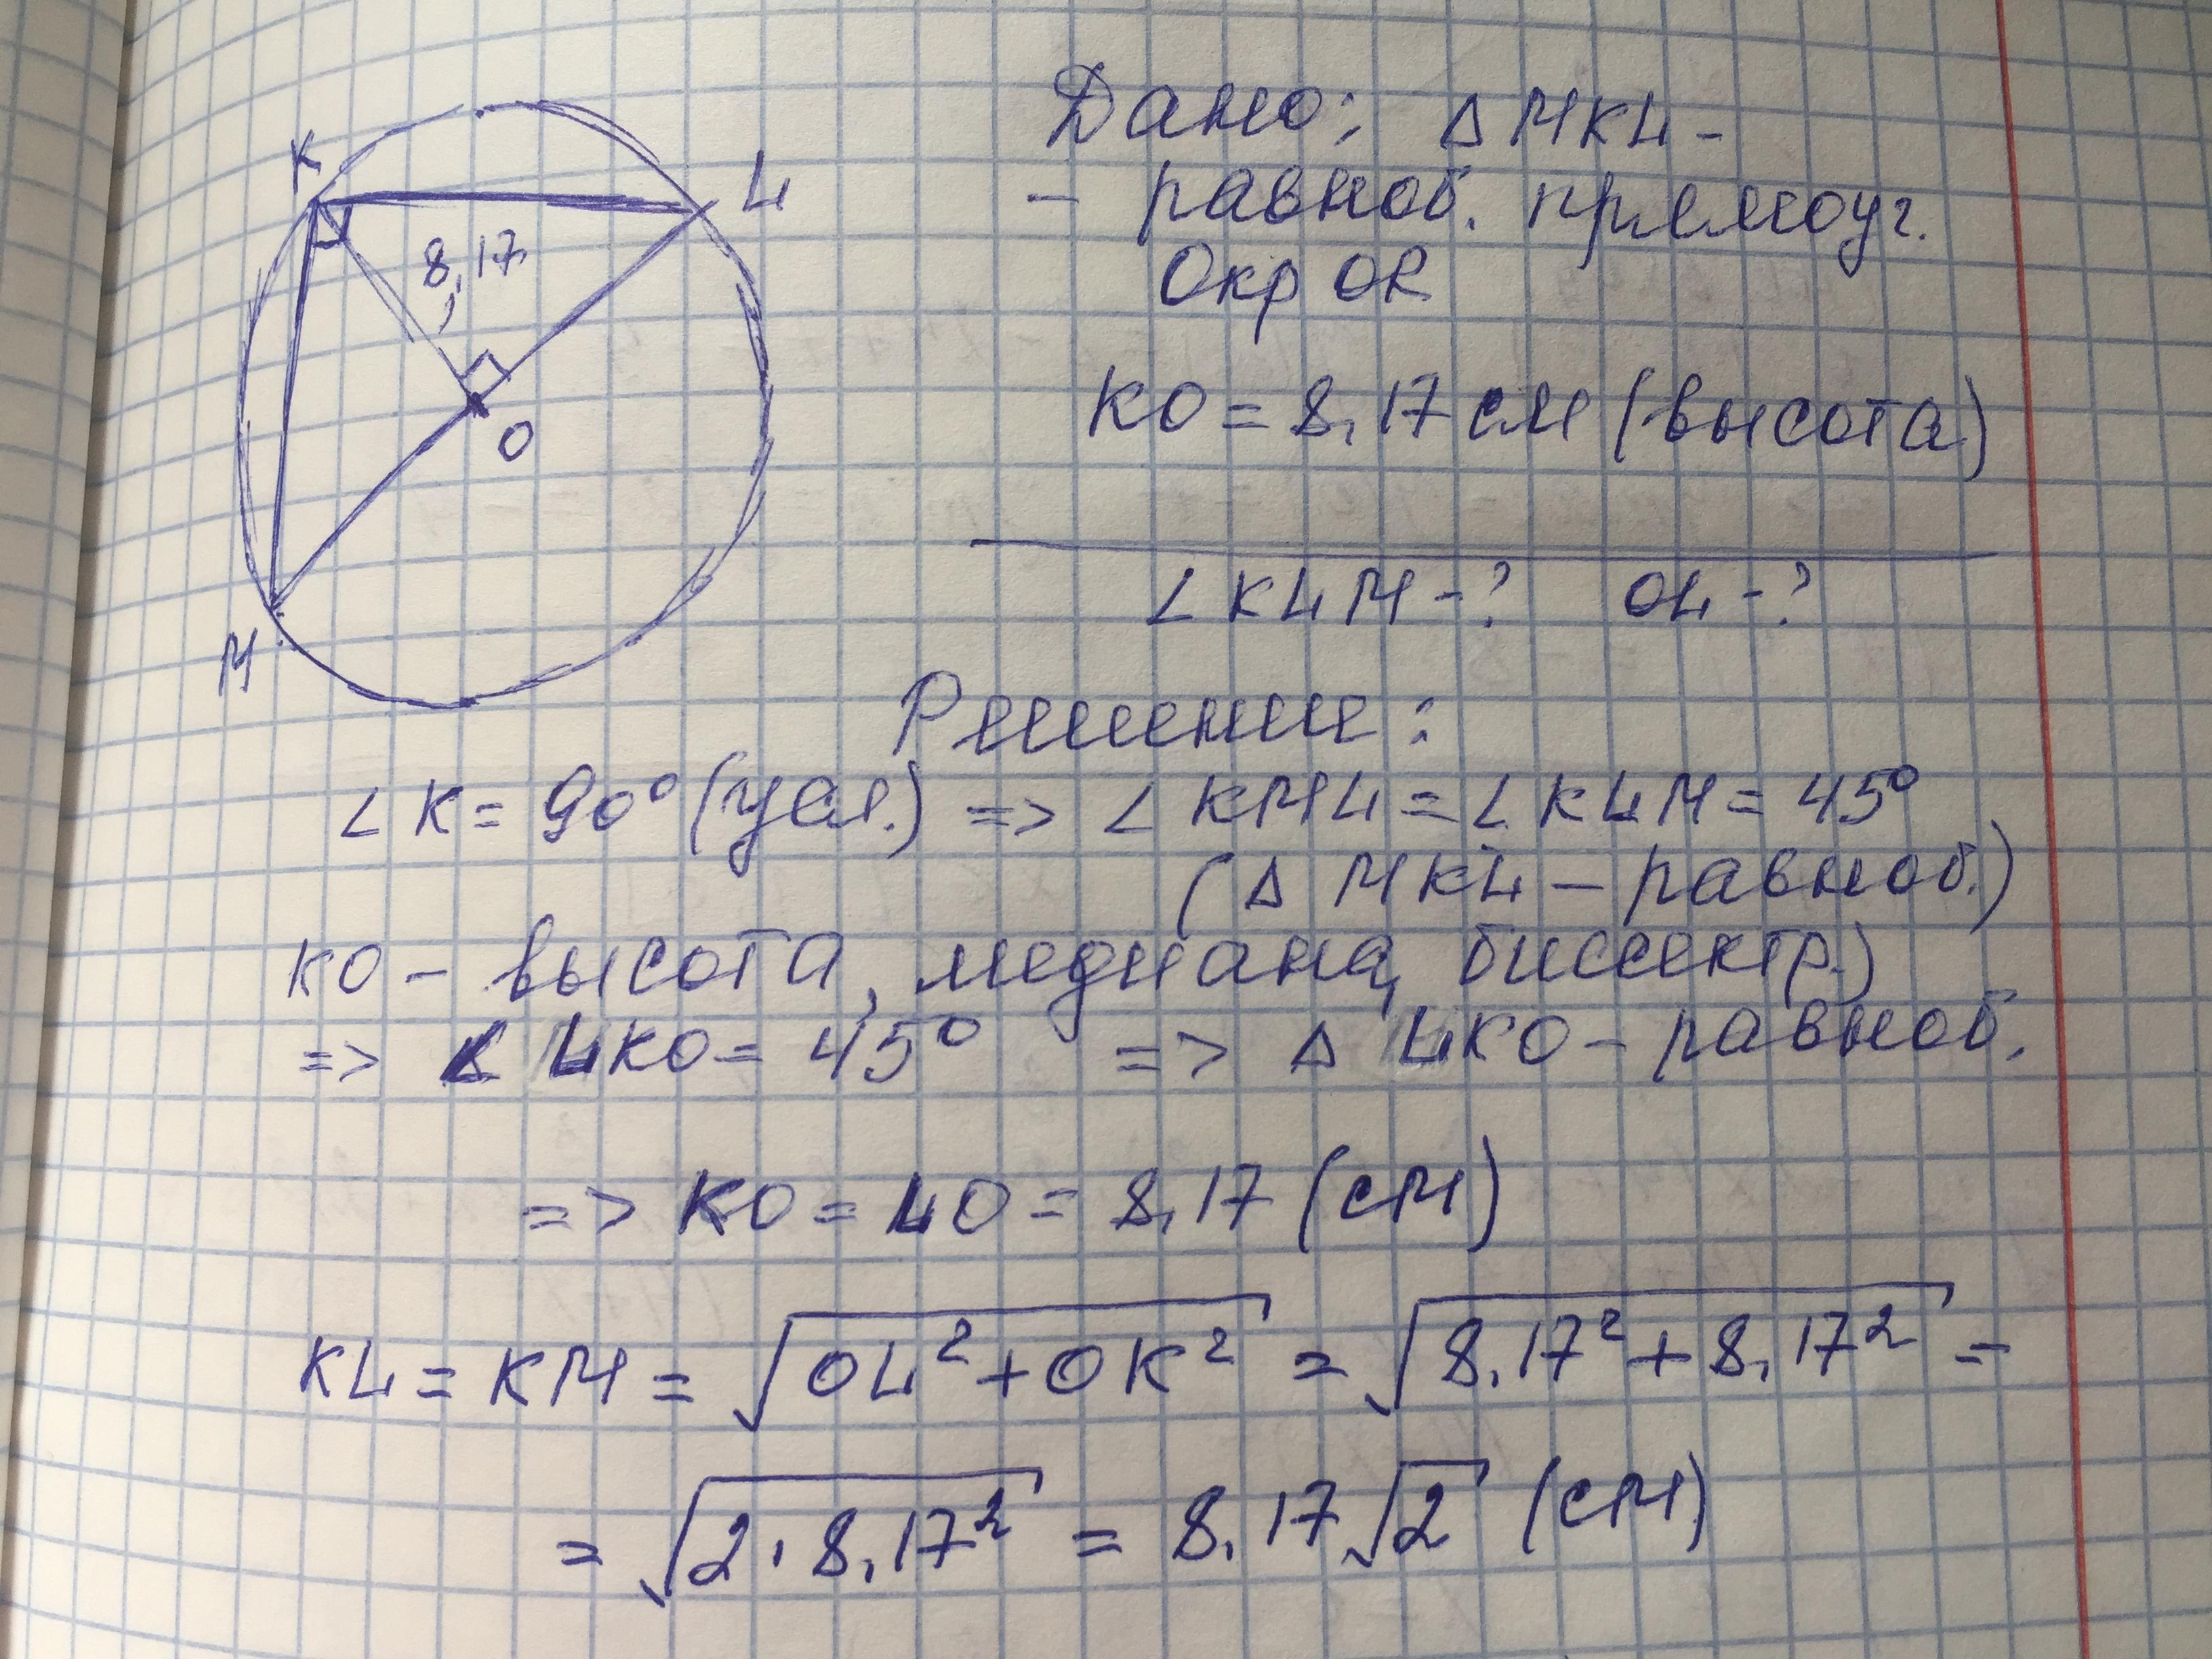 K
L
8,17
O
M
Дано: Δ MKL -
- равноб. прямоуг.
Окр OR
KO = 8,17 см (высота)
∠ KLM - ? OL - ?
Решение:
∠ K = 90° (усл.) => ∠ KML = ∠ KLM = 45°
(Δ MKL - равноб.)
KO - высота, медиана, биссектр.)
=> ∠ LKO = 45° => Δ LKO - равноб.
=> KO = LO = 8,17 (см)
KL = KM = √(OL² + OK²) = √(8,17² + 8,17²) =
= √(2 · 8,17²) = 8,17√2 (см)